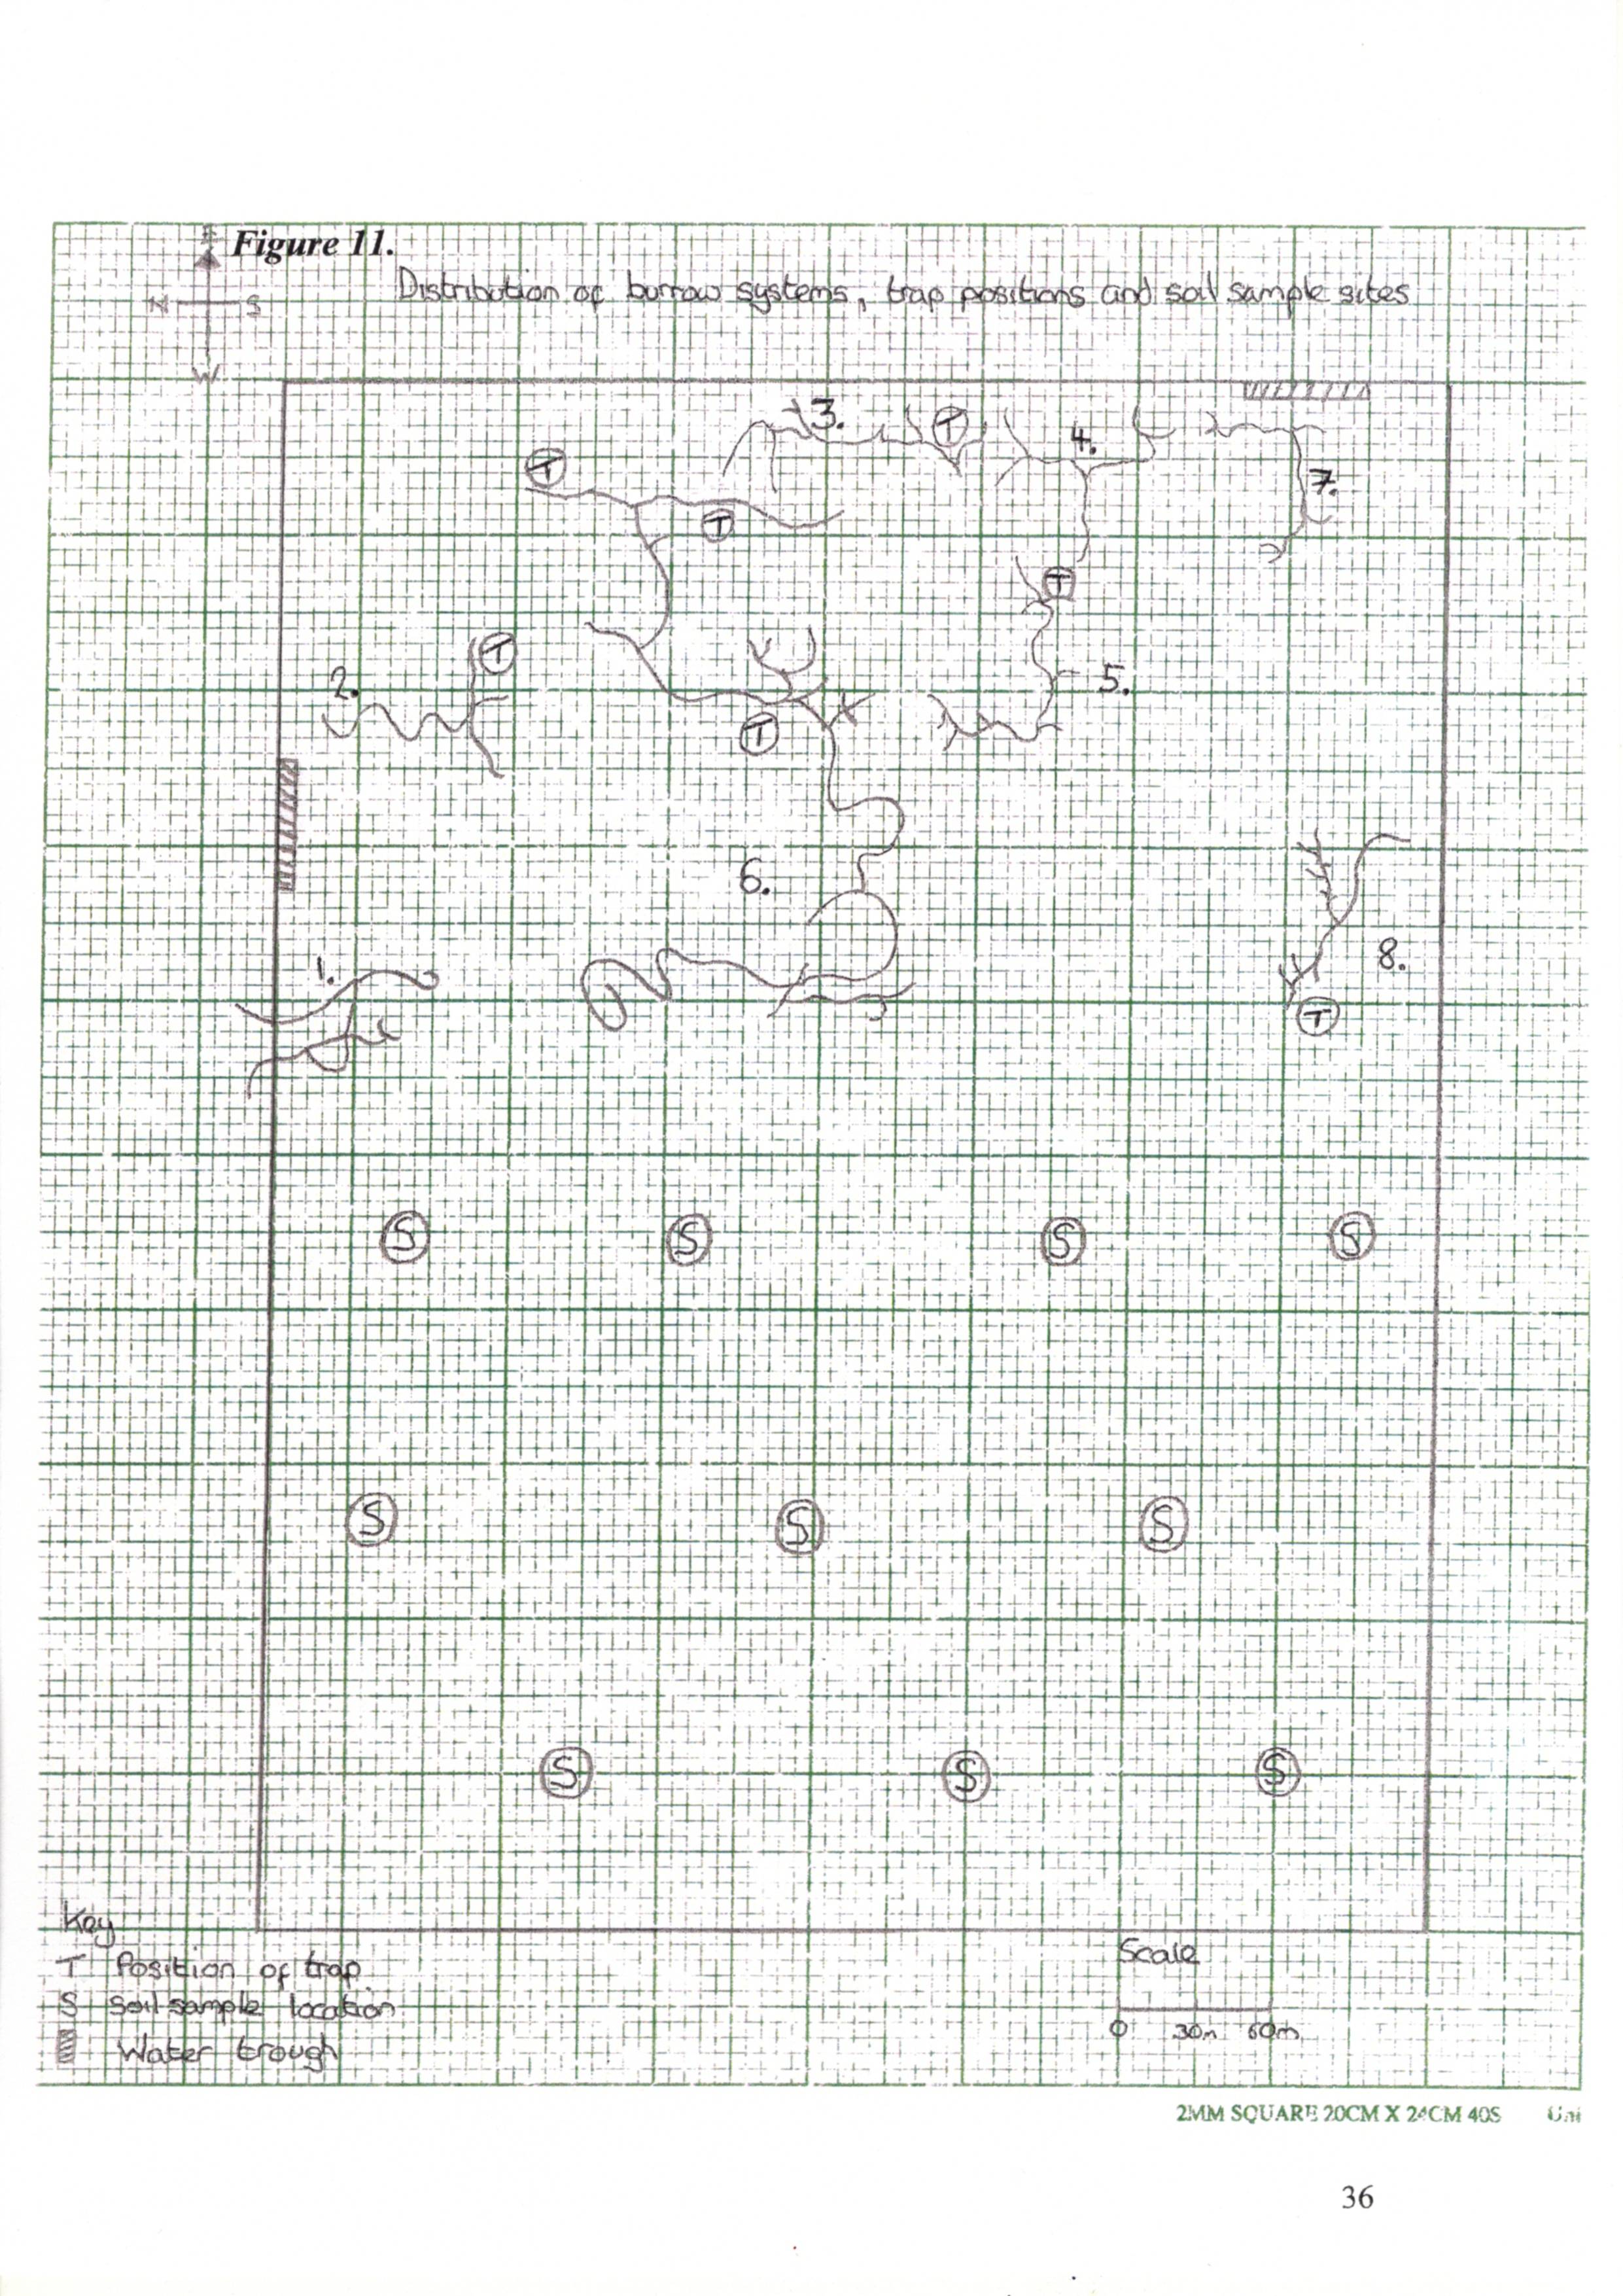 Figure 11.
Distribution of burrow systems, trap positions and soil sample sites
E
N S
W
3.
T
4.
T
7.
T
T
T
2.
5.
T
6.
1.
8.
T
S S S S
S S S
S S S
Key
T Position of trap
S Soil sample location
Water trough
Scale
0 30m 60m
2MM SQUARE 20CM X 24CM 40S Uni
36